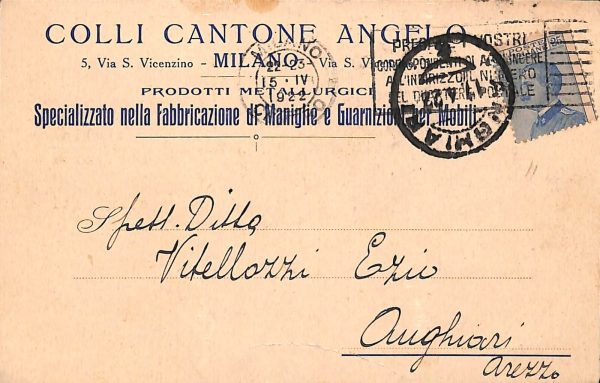 COLLI CANTONE ANGELO
5, Via S. Vicenzino - MILANO - Via S.
PRODOTTI METALLURGICI
Specializzato nella Fabbricazione di Maniglie e Guarnizioni per Mobili
MILANO
22-23
15·IV
1922
PREGATE I VOSTRI
CORRISPONDENTI DI AGGIUNGERE
ALL'INDIRIZZO IL NUMERO
DEL QUARTIERE POSTALE
ANGHIARI
Spett. Ditta
Vitellozzi Ezio
Anghiari
Arezzo